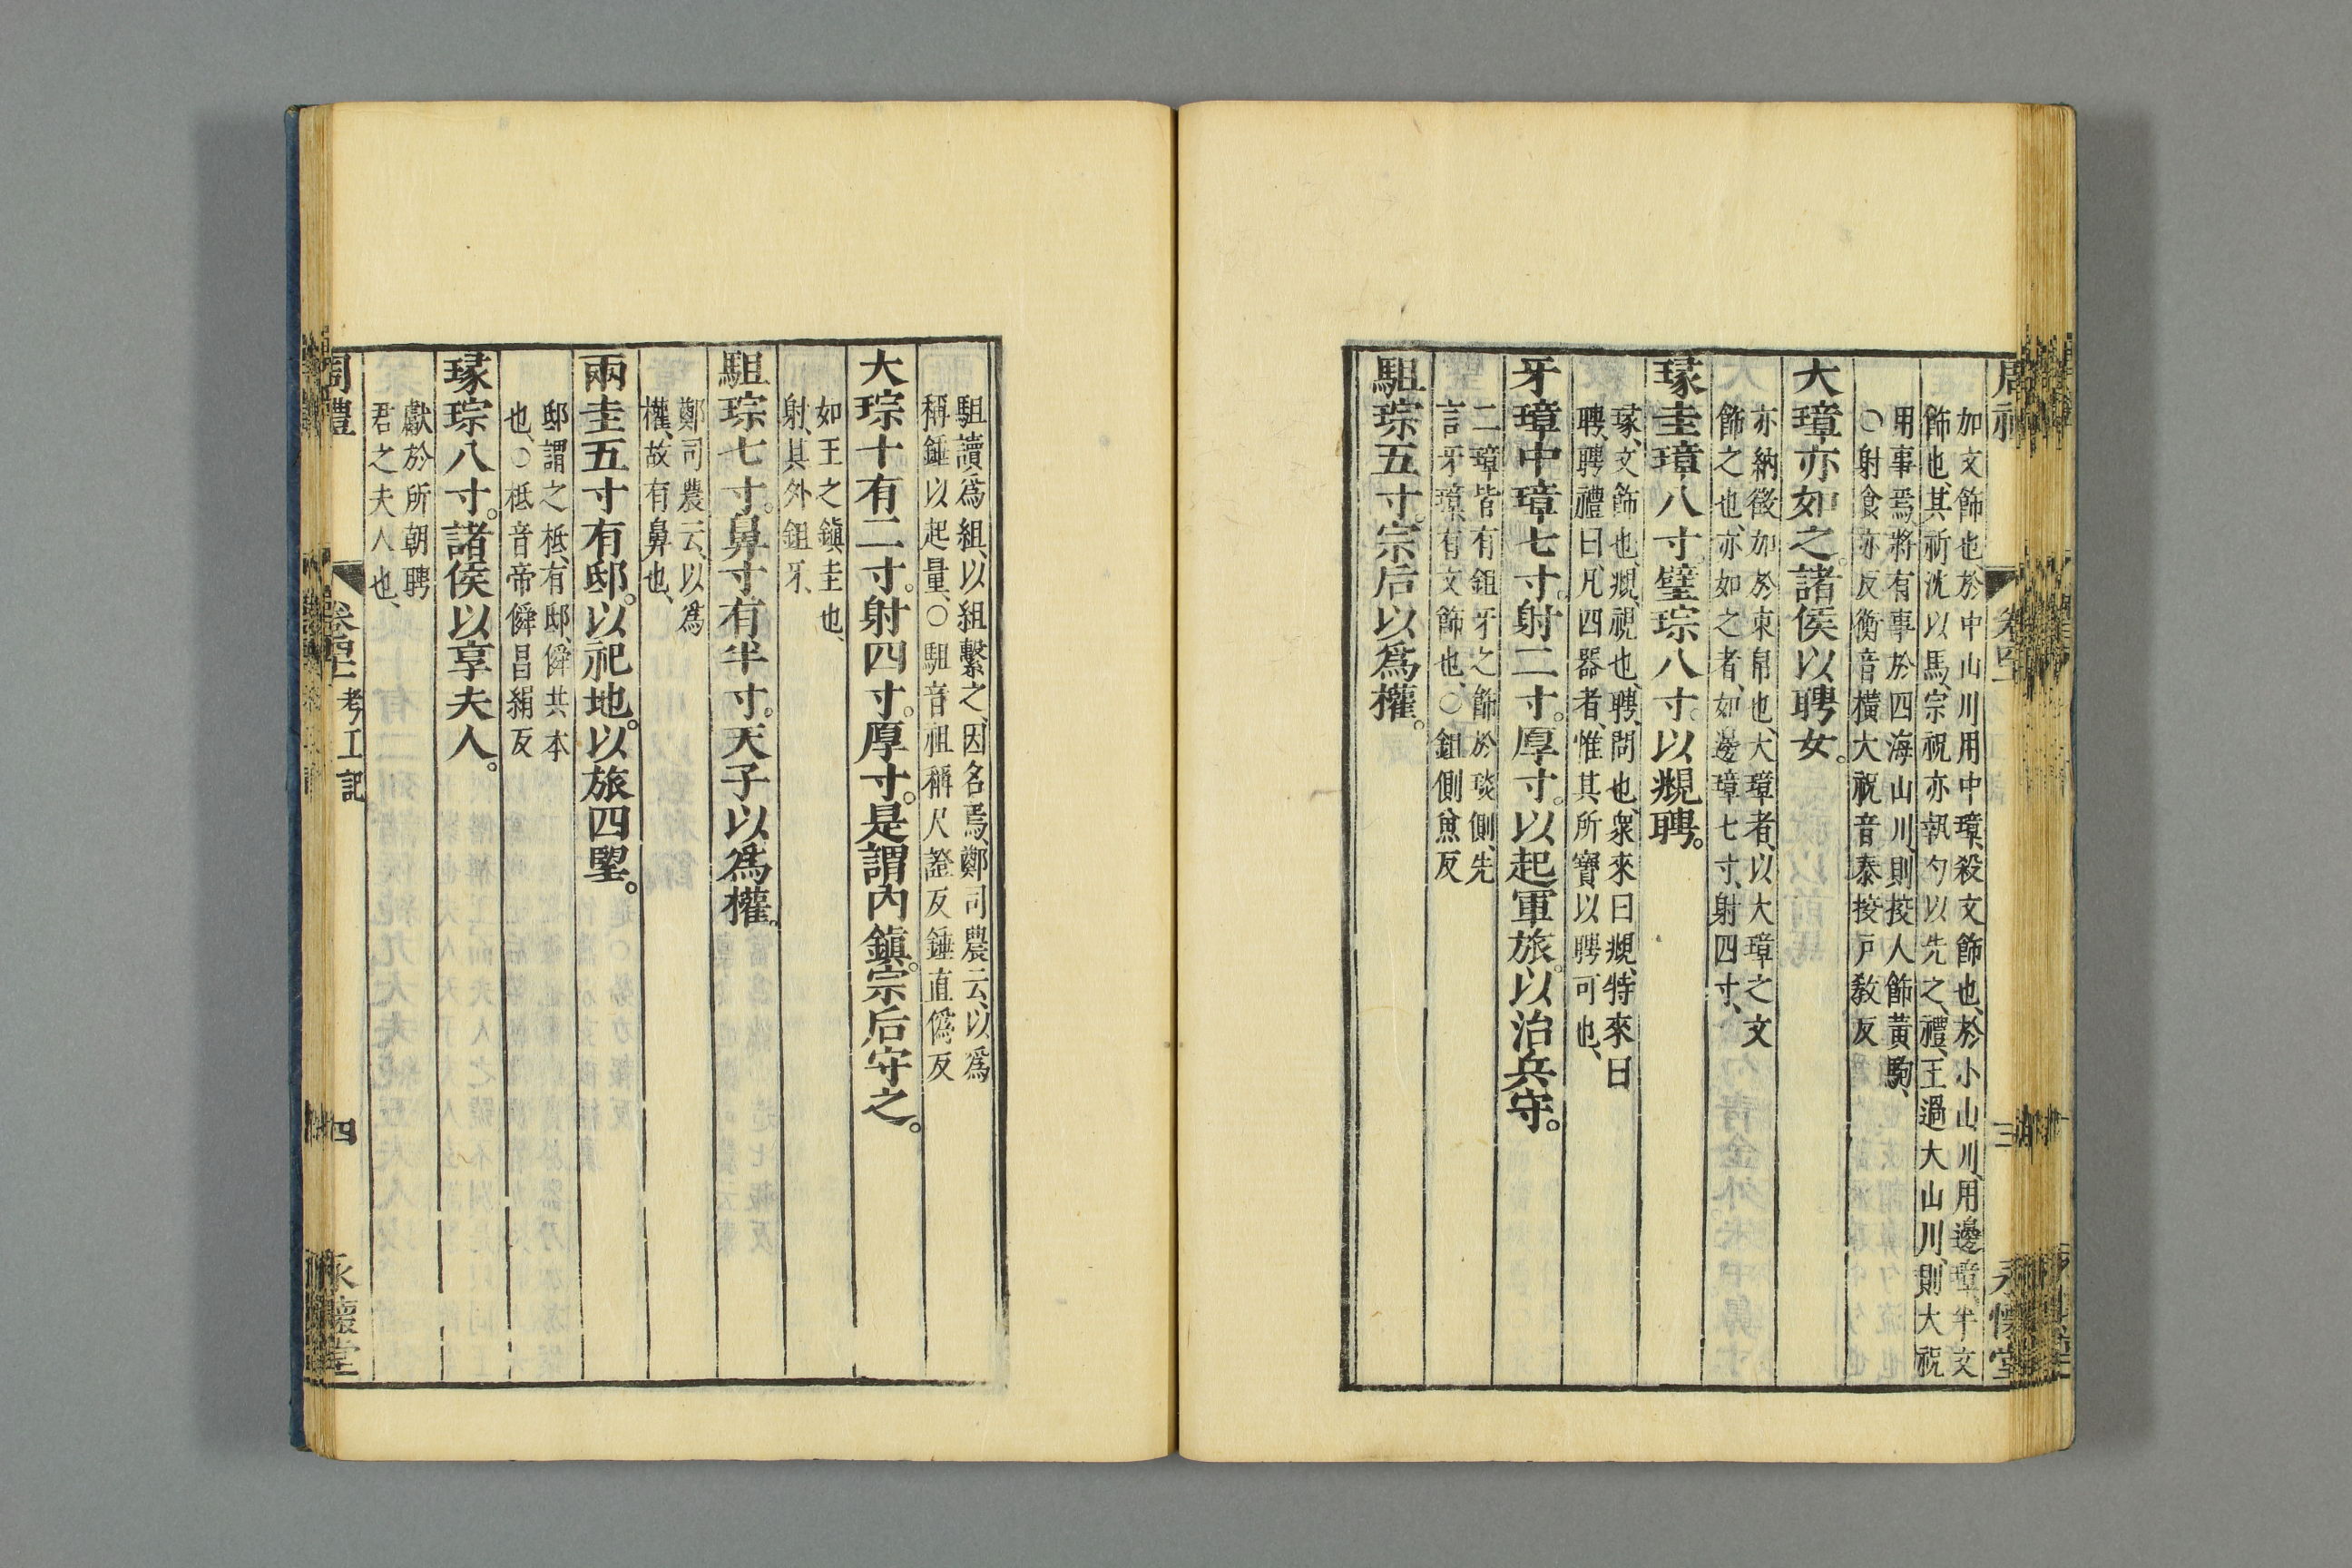 周禮
卷四十
三
永懷堂
如文飾也、於中山川用中璋、殺文飾也、於小山川、用邊璋、半文
飾也、其祈沈以馬、宗祝亦執勺以先之、禮、王過大山川、則大祝
用事焉、將有事於四海山川、則挍人飾黃駒、
○射食亦反衡音橫大祝音泰挍戸敎反
大璋亦如之。諸侯以聘女。
亦納徵加於束帛也、大璋者、以大璋之文
飾之也、亦如之者、如邊璋七寸、射四寸、
瑑圭璋八寸。璧琮八寸。以覜聘。
瑑、文飾也、覜、視也、聘、問也、衆來曰覜、特來曰
聘、聘禮曰、凡四器者、惟其所寶以聘可也、
牙璋中璋七寸。射二寸。厚寸。以起軍旅。以治兵守。
二璋皆有鉏牙之飾於琰側、先
言牙璋、有文飾也、○鉏側魚反
駔琮五寸。宗后以爲權。
駔讀爲組、以組繫之、因名焉、鄭司農云、以爲
稱錘以起量、○駔音祖稱尺證反錘直僞反
大琮十有二寸。射四寸。厚寸。是謂內鎮。宗后守之。
如王之鎮圭也、
射、其外鉏牙、
駔琮七寸。鼻寸有半寸。天子以爲權。
鄭司農云、以爲
權、故有鼻也、
兩圭五寸有邸。以祀地。以旅四望。
邸謂之柢、有邸、僢共本
也、○柢音帝僢昌絹反
瑑琮八寸。諸侯以享夫人。
獻於所朝聘
君之夫人也、
周禮
卷四十一 考工記
四
永懷堂